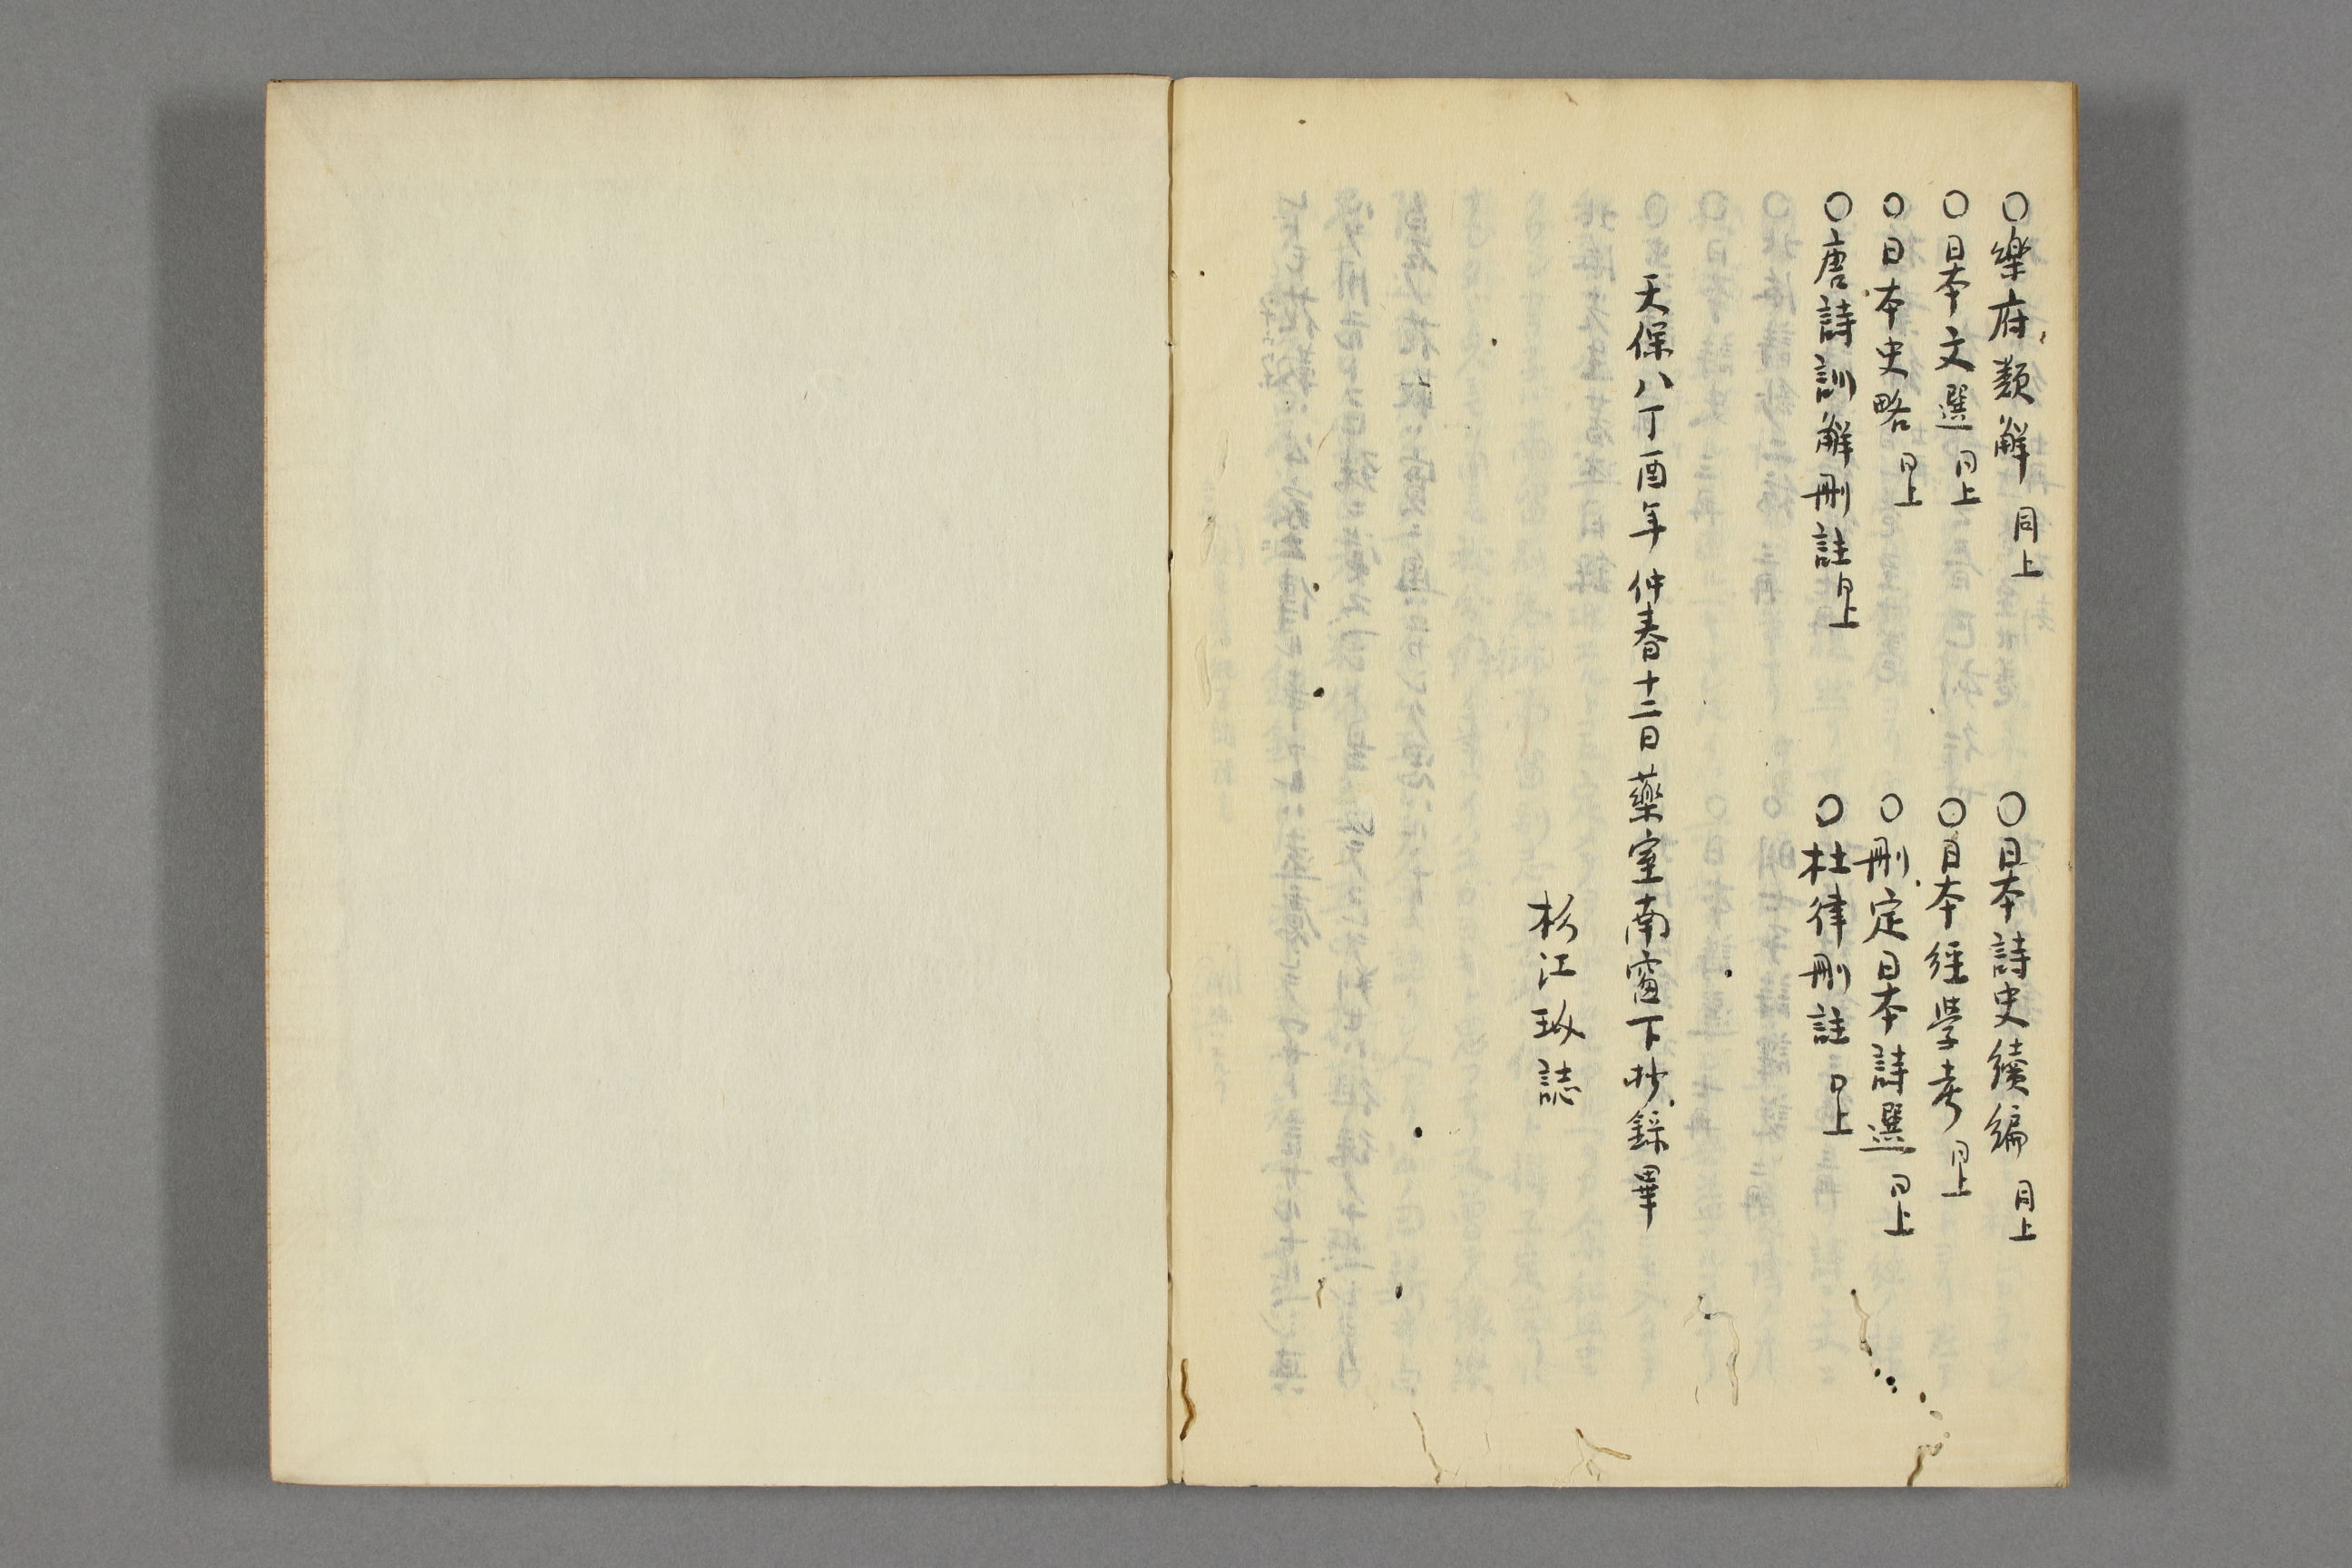 ○樂府類解 同上 ○日本詩史續編 同上
○日本文選 同上 ○日本經學考 同上
○日本史略 同上 ○刪定日本詩選 同上
○唐詩訓解刪註 同上 ○杜律刪註 同上
天保八丁酉年仲春十二日藥室南窗下抄錄畢
杉江 誌